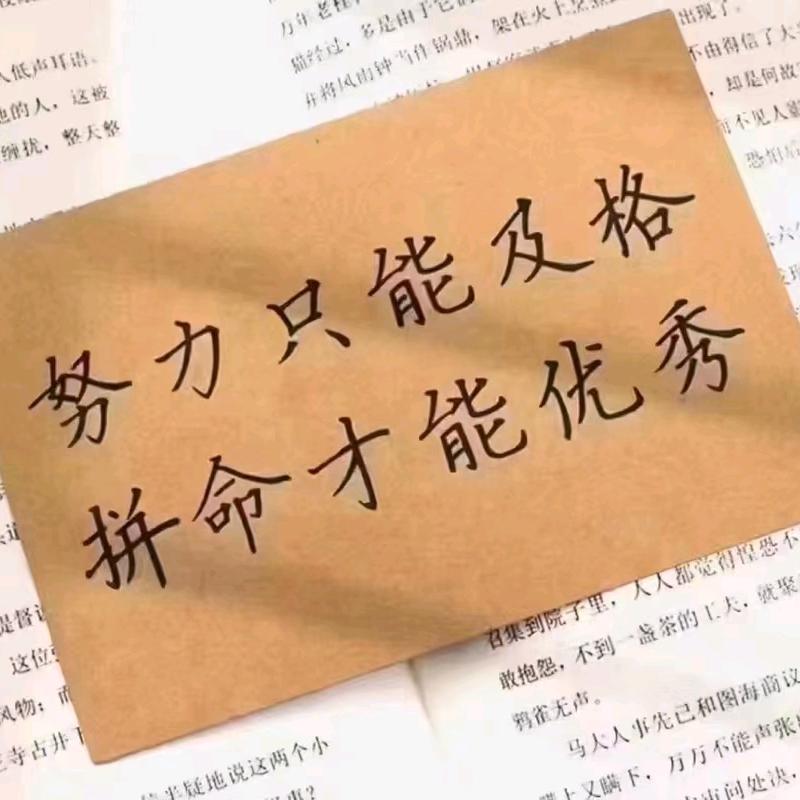 万年老桩
多是由于它
架在火上烹
出现了。
猫经过,
不由得信了大
人低声耳语。
却是何故
他的人,这被
而不见人影
缠扰,整天整
恐怕后
努力只能及格
拼命才能优秀
人人都觉得惶恐不
召集到院子里,
提督
敢抱怨,不到一盏茶的工夫,就聚
这位
鸦雀无声。
风物;而
马大人事先已和图海商议
寺古井
瞒上又瞒下,万万不能声张
信半疑地说这两个小
问处决,